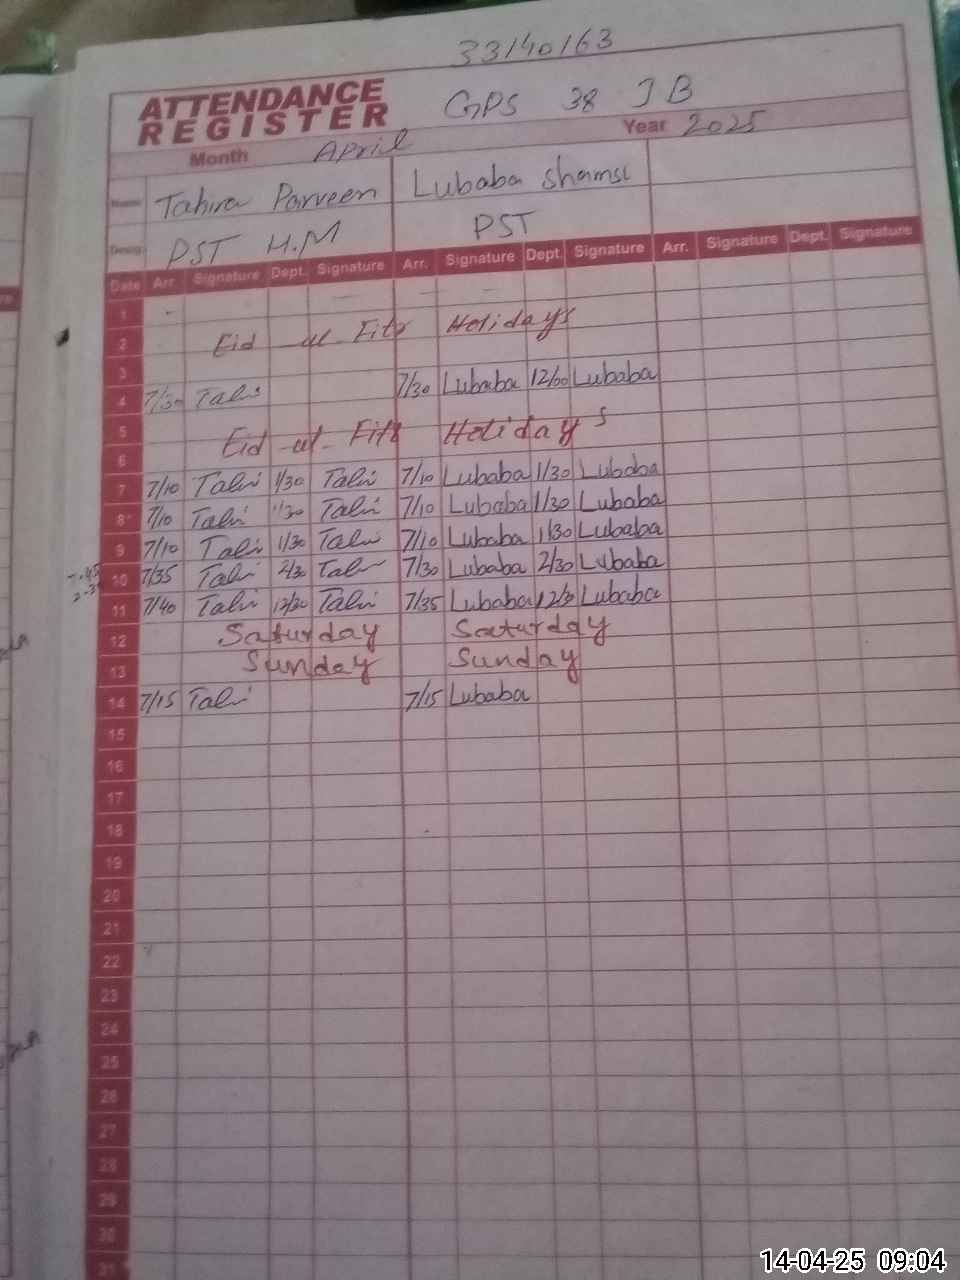 33140163
ATTENDANCE
REGISTER
GPS 38 JB
Month April Year 2025
Name Tahira Parveen Lubaba Shamsi
Desig. PST H.M PST
Date Arr. Signature Dept. Signature Arr. Signature Dept. Signature Arr. Signature Dept. Signature
1
2 Eid -ul- Fitr Holidays
3
4 7/30 Tahi 7/30 Lubaba 12/00 Lubaba
5
6 Eid -ul- Fitr Holidays
7 7/10 Tahi 1/30 Tahi 7/10 Lubaba 1/30 Lubaba
8 7/10 Tahi 1/30 Tahi 7/10 Lubaba 1/30 Lubaba
9 7/10 Tahi 1/30 Tahi 7/10 Lubaba 1/30 Lubaba
10 7/35 Tahi 2/30 Tahi 7/30 Lubaba 2/30 Lubaba
11 7/40 Tahi 12/30 Tahi 7/35 Lubaba 12/30 Lubaba
12 Saturday Saturday
13 Sunday Sunday
14 7/15 Tahi 7/15 Lubaba
15
16
17
18
19
20
21
22
23
24
25
26
27
28
29
30
31
14-04-25 09:04